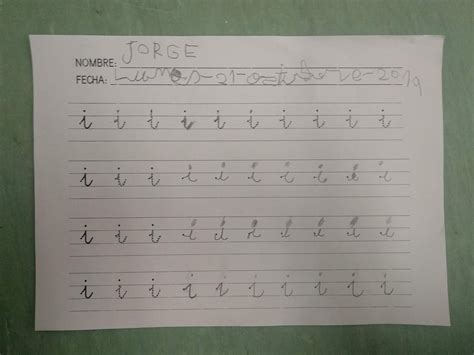 NOMBRE: JORGE
FECHA: Lunes-21-octubre-2019
i i i i i i i i i i
i i i i i i i i i i
i i i i i i i i i i
i i i i i i i i i i